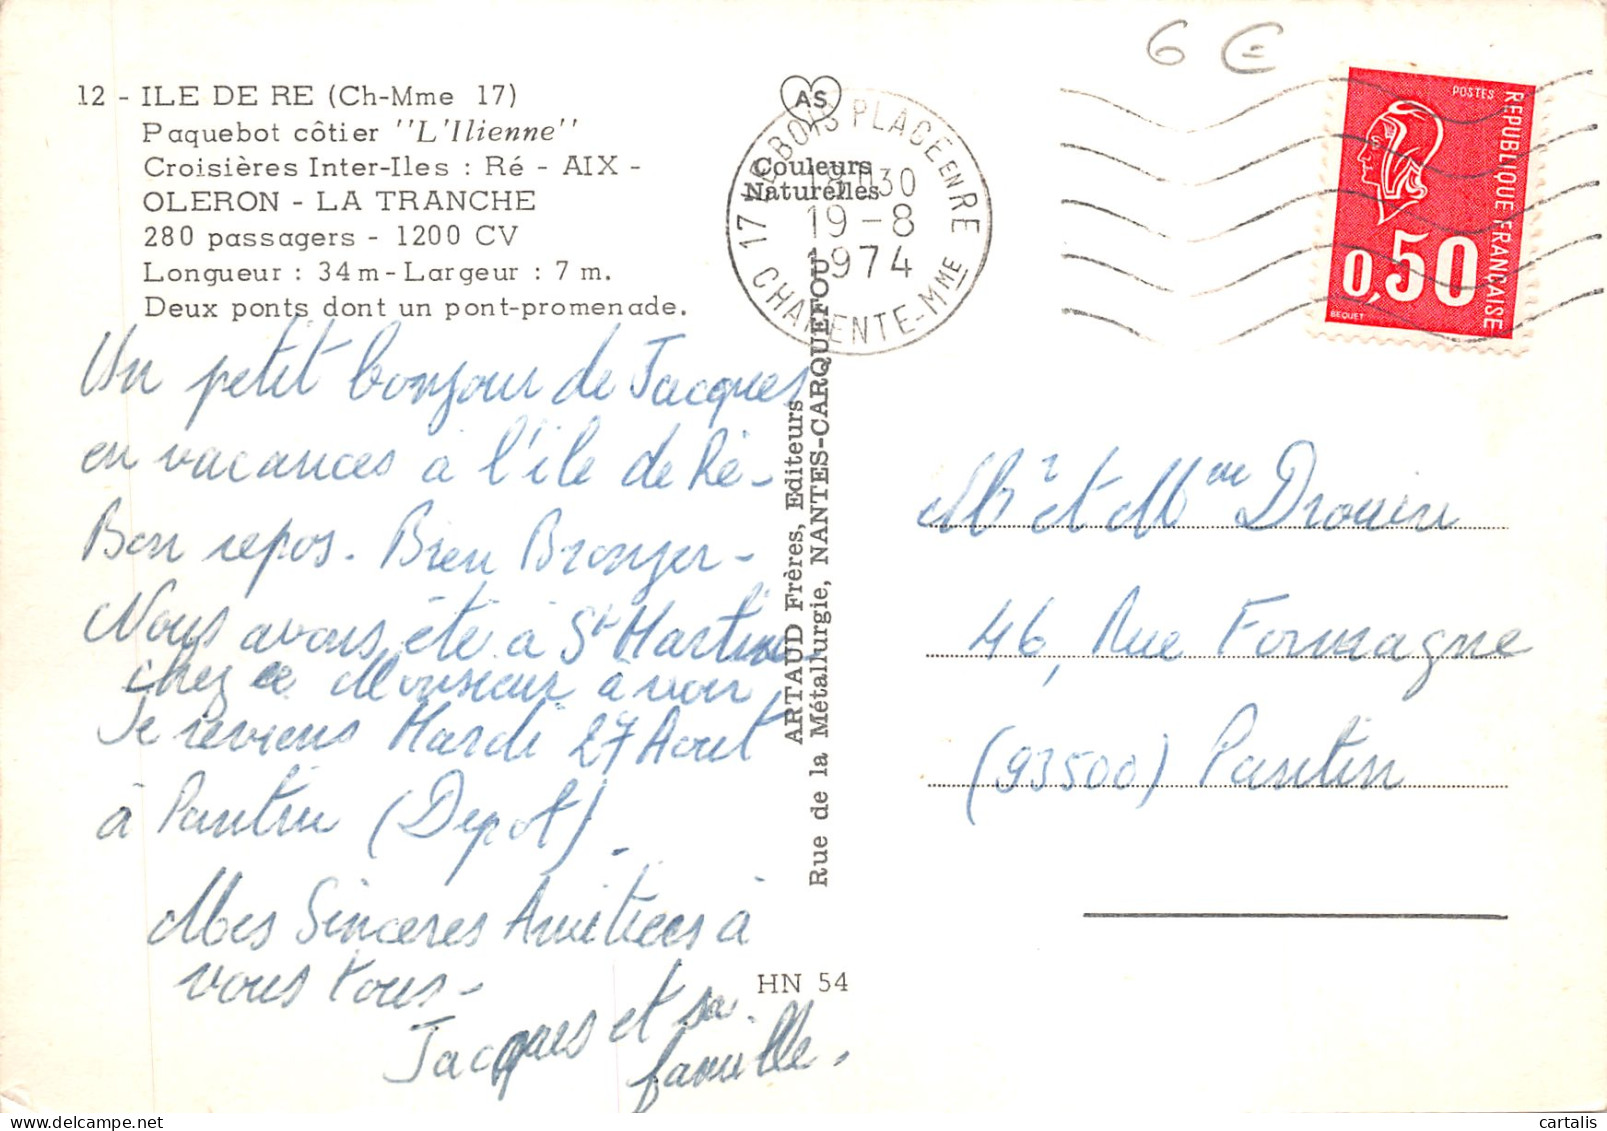 6 €
12 - ILE DE RE (Ch-Mme 17)
Paquebot côtier "L'Ilienne"
Croisières Inter-Iles : Ré - AIX -
OLERON - LA TRANCHE
280 passagers - 1200 CV
Longueur : 34 m - Largeur : 7 m.
Deux ponts dont un pont-promenade.
Un petit bonjour de Jacques
en vacances à l'île de Ré -
Bon repos. Bien Bronzer -
Nous avons été à St Martin
chez ce Monsieur à voir,
Je reviens Mardi 27 Aout
à Pantin (Depot).
Mes Sinceres Amitiees à
vous tous -
Jacques et sa
famille.
AS
Couleurs
Naturelles
17 BOIS PLAGE EN RE
30
19-8
1974
CHARENTE-MME
ARTAUD Frères, Editeurs
Rue de la Métallurgie, NANTES-CARQUEFOU
HN 54
POSTES
REPUBLIQUE FRANCAISE
0,50
BEQUET
Mr et Mme Drouin
46, Rue Formagne
(93500) Pantin
cartalis